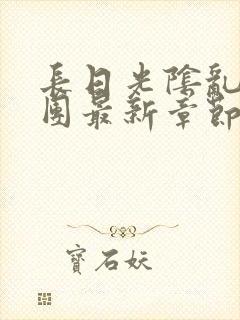 長日光陰亂
團最新章節
寶石妖